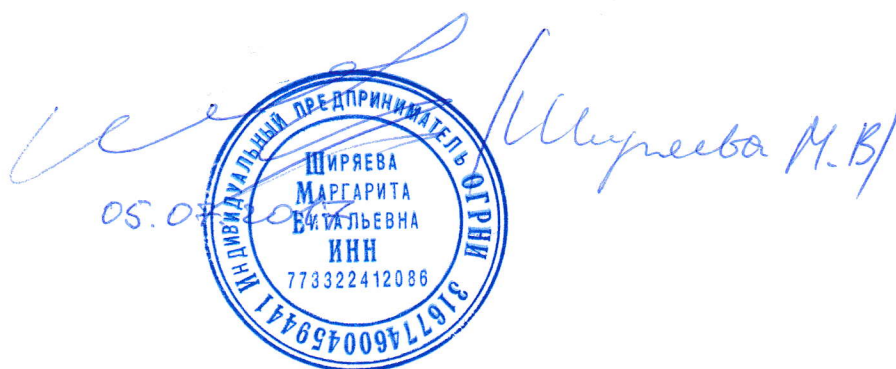 /Ширяева М.В/
05.07.2017
ИНДИВИДУАЛЬНЫЙ ПРЕДПРИНИМАТЕЛЬ ОГРНИП 316774600459441
ШИРЯЕВА
МАРГАРИТА
ВИТАЛЬЕВНА
ИНН
773322412086